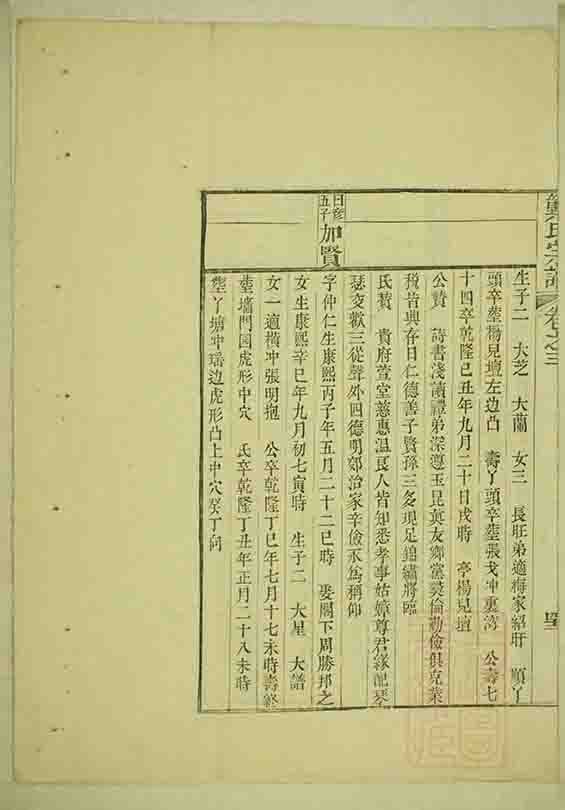 氏宗譜 卷之三
生子二 大芝 大蘭 女三 長旺弟適梅家紹旰 順丫
頭卒塟楊見壇左边凸 壽丫頭卒塟張戈冲裏湾 公壽七
十四卒乾隆己丑年九月二十日戌時 亭楊見壇
公賛 詩書淺讀禮弟深遵玉昆真友鄉黨奬倫勤儉俱克業
税皆興存日仁德善子賢孫三多現足錦繡將臨
氏賛 貴府萱堂慈惠温良人皆知悉孝事姑嫜尊君緣配琴
瑟交歡三從聲外四德明郊治家辛儉永為稱仰
日彦五子 加賢
字仲仁生康熙丙子年五月二十二巳時 娶閣下周勝邦之
女生康熙辛巳年九月初七寅時 生子二 大星 大譜
女一適橫冲張明抱 公卒乾隆丁巳年七月十七未時壽終
塟墻門园虎形中穴 氏卒乾隆丁丑年正月二十八未時
塟丫塘冲瑶边虎形凸上中穴癸丁向